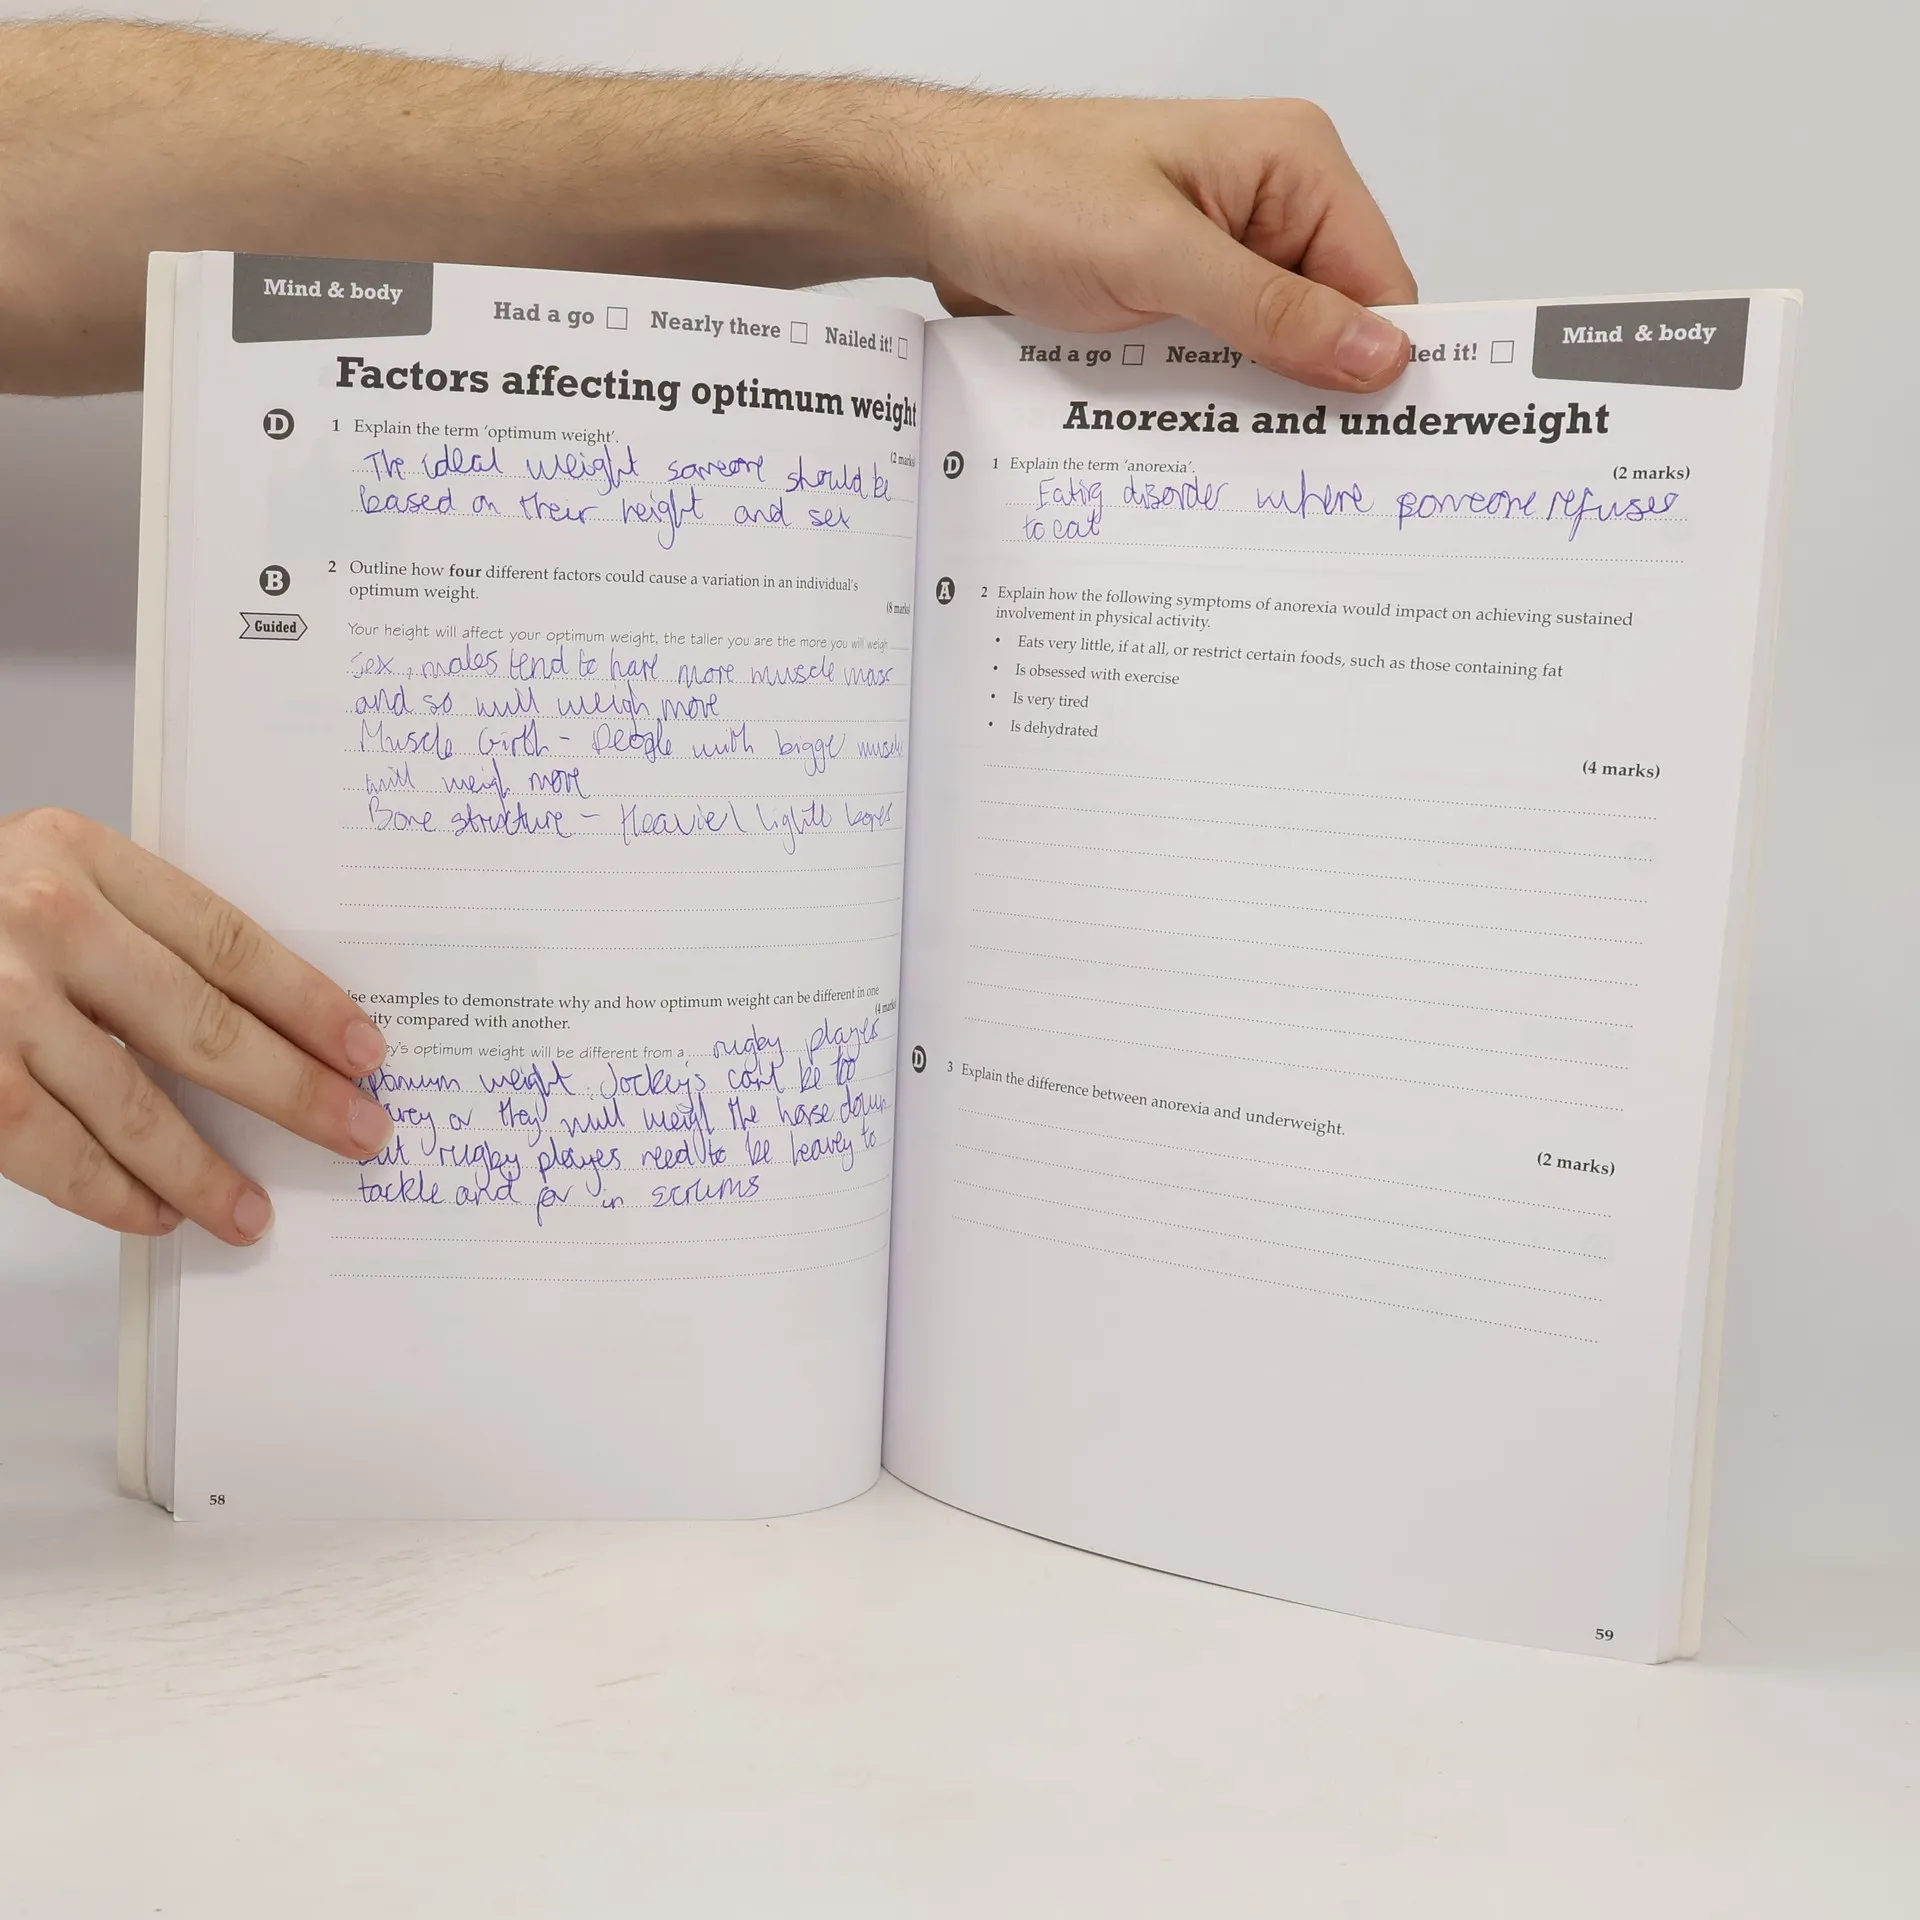 Mind & body
Had a go Nearly there Nailed it!
Factors affecting optimum weight
D
1 Explain the term ‘optimum weight’.
(2 marks
The ideal weight someone should be
based on their height and sex
B
2 Outline how four different factors could cause a variation in an individual's
optimum weight.
(8 marks
Guided
Your height will affect your optimum weight, the taller you are the more you will weigh
Sex, males tend to have more muscle mass
and so will weigh more
Muscle Girth - People with bigger muscle
will weigh more
Bone structure - Heavier/lighter bones
se examples to demonstrate why and how optimum weight can be different in one
ity compared with another.
(4 marks
y's optimum weight will be different from a rugby players
optimum weight. Jockey's can't be too
or they will weigh the horse down
but rugby players need to be heavey to
tackle and for in scrums
58
Mind & body
Had a go Nearly led it!
Anorexia and underweight
D
1 Explain the term ‘anorexia’.
(2 marks)
Eating disorder where someone refuses
to eat
A
2 Explain how the following symptoms of anorexia would impact on achieving sustained
involvement in physical activity.
• Eats very little, if at all, or restrict certain foods, such as those containing fat
• Is obsessed with exercise
• Is very tired
• Is dehydrated
(4 marks)
D
3 Explain the difference between anorexia and underweight.
(2 marks)
59